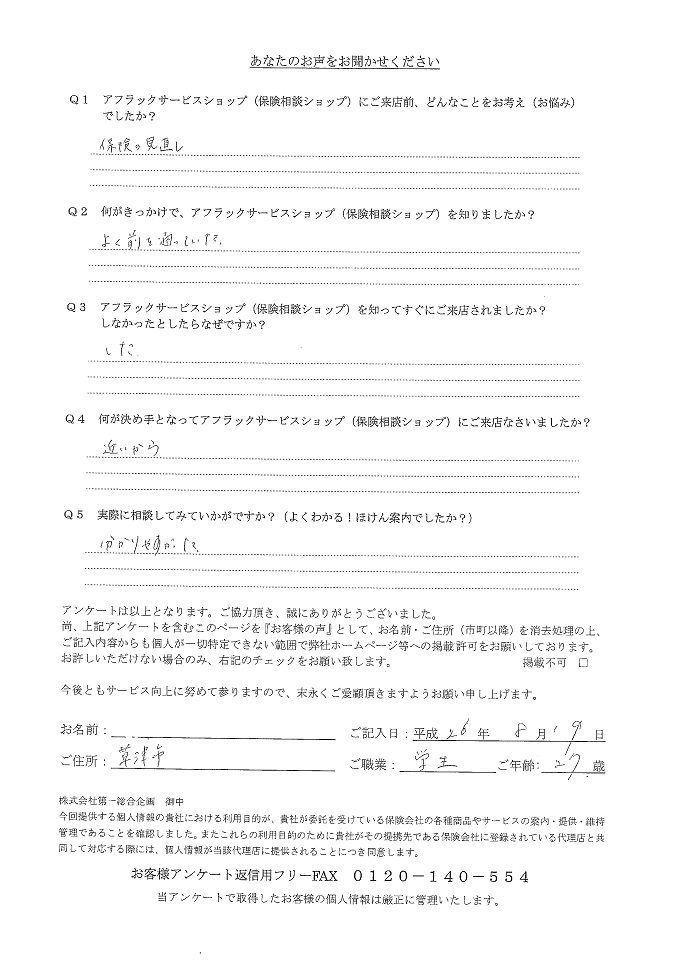 あなたのお声をお聞かせください
Q1 アフラックサービスショップ（保険相談ショップ）にご来店前、どんなことをお考え（お悩み）
でしたか？
保険の見直し
Q2 何がきっかけで、アフラックサービスショップ（保険相談ショップ）を知りましたか？
よく前を通っていた
Q3 アフラックサービスショップ（保険相談ショップ）を知ってすぐにご来店されましたか？
しなかったとしたらなぜですか？
した
Q4 何が決め手となってアフラックサービスショップ（保険相談ショップ）にご来店なさいましたか？
近いから
Q5 実際に相談してみていかがですか？（よくわかる！ほけん案内でしたか？）
わかりやすかった
アンケートは以上となります。ご協力頂き、誠にありがとうございました。
尚、上記アンケートを含むこのページを『お客様の声』として、お名前・ご住所（市町以降）を消去処理の上、
ご記入内容からも個人が一切特定できない範囲で弊社ホームページ等への掲載許可をお願いしております。
お許しいただけない場合のみ、右記のチェックをお願い致します。 掲載不可 □
今後ともサービス向上に努めて参りますので、末永くご愛顧頂きますようお願い申し上げます。
お名前： ご記入日：平成 26 年 8 月 19 日
ご住所： 草津市 ご職業： 学生 ご年齢： 27 歳
株式会社第一総合企画 御中
今回提供する個人情報の貴社における利用目的が、貴社が委託を受けている保険会社の各種商品やサービスの案内・提供・維持
管理であることを確認しました。またこれらの利用目的のために貴社がその提携先である保険会社に登録されている代理店と共
同して対応する際には、個人情報が当該代理店に提供されることにつき同意します。
お客様アンケート返信用フリーFAX 0120－140－554
当アンケートで取得したお客様の個人情報は厳正に管理いたします。